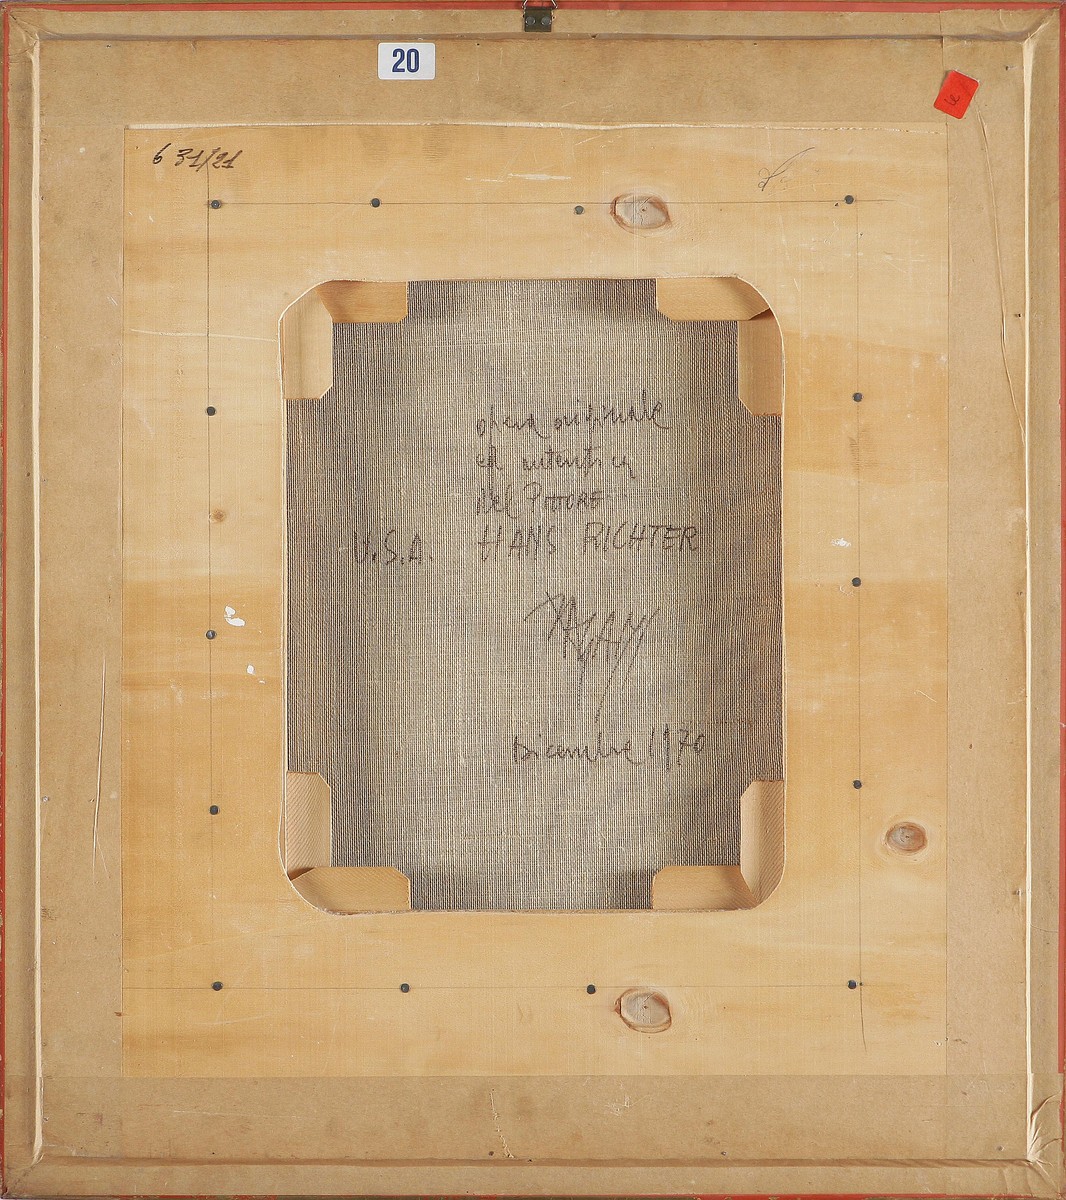 20
6 31/21
opera originale
ed autentica
del Pittore
U.S.A. HANS RICHTER
Dicembre 1970